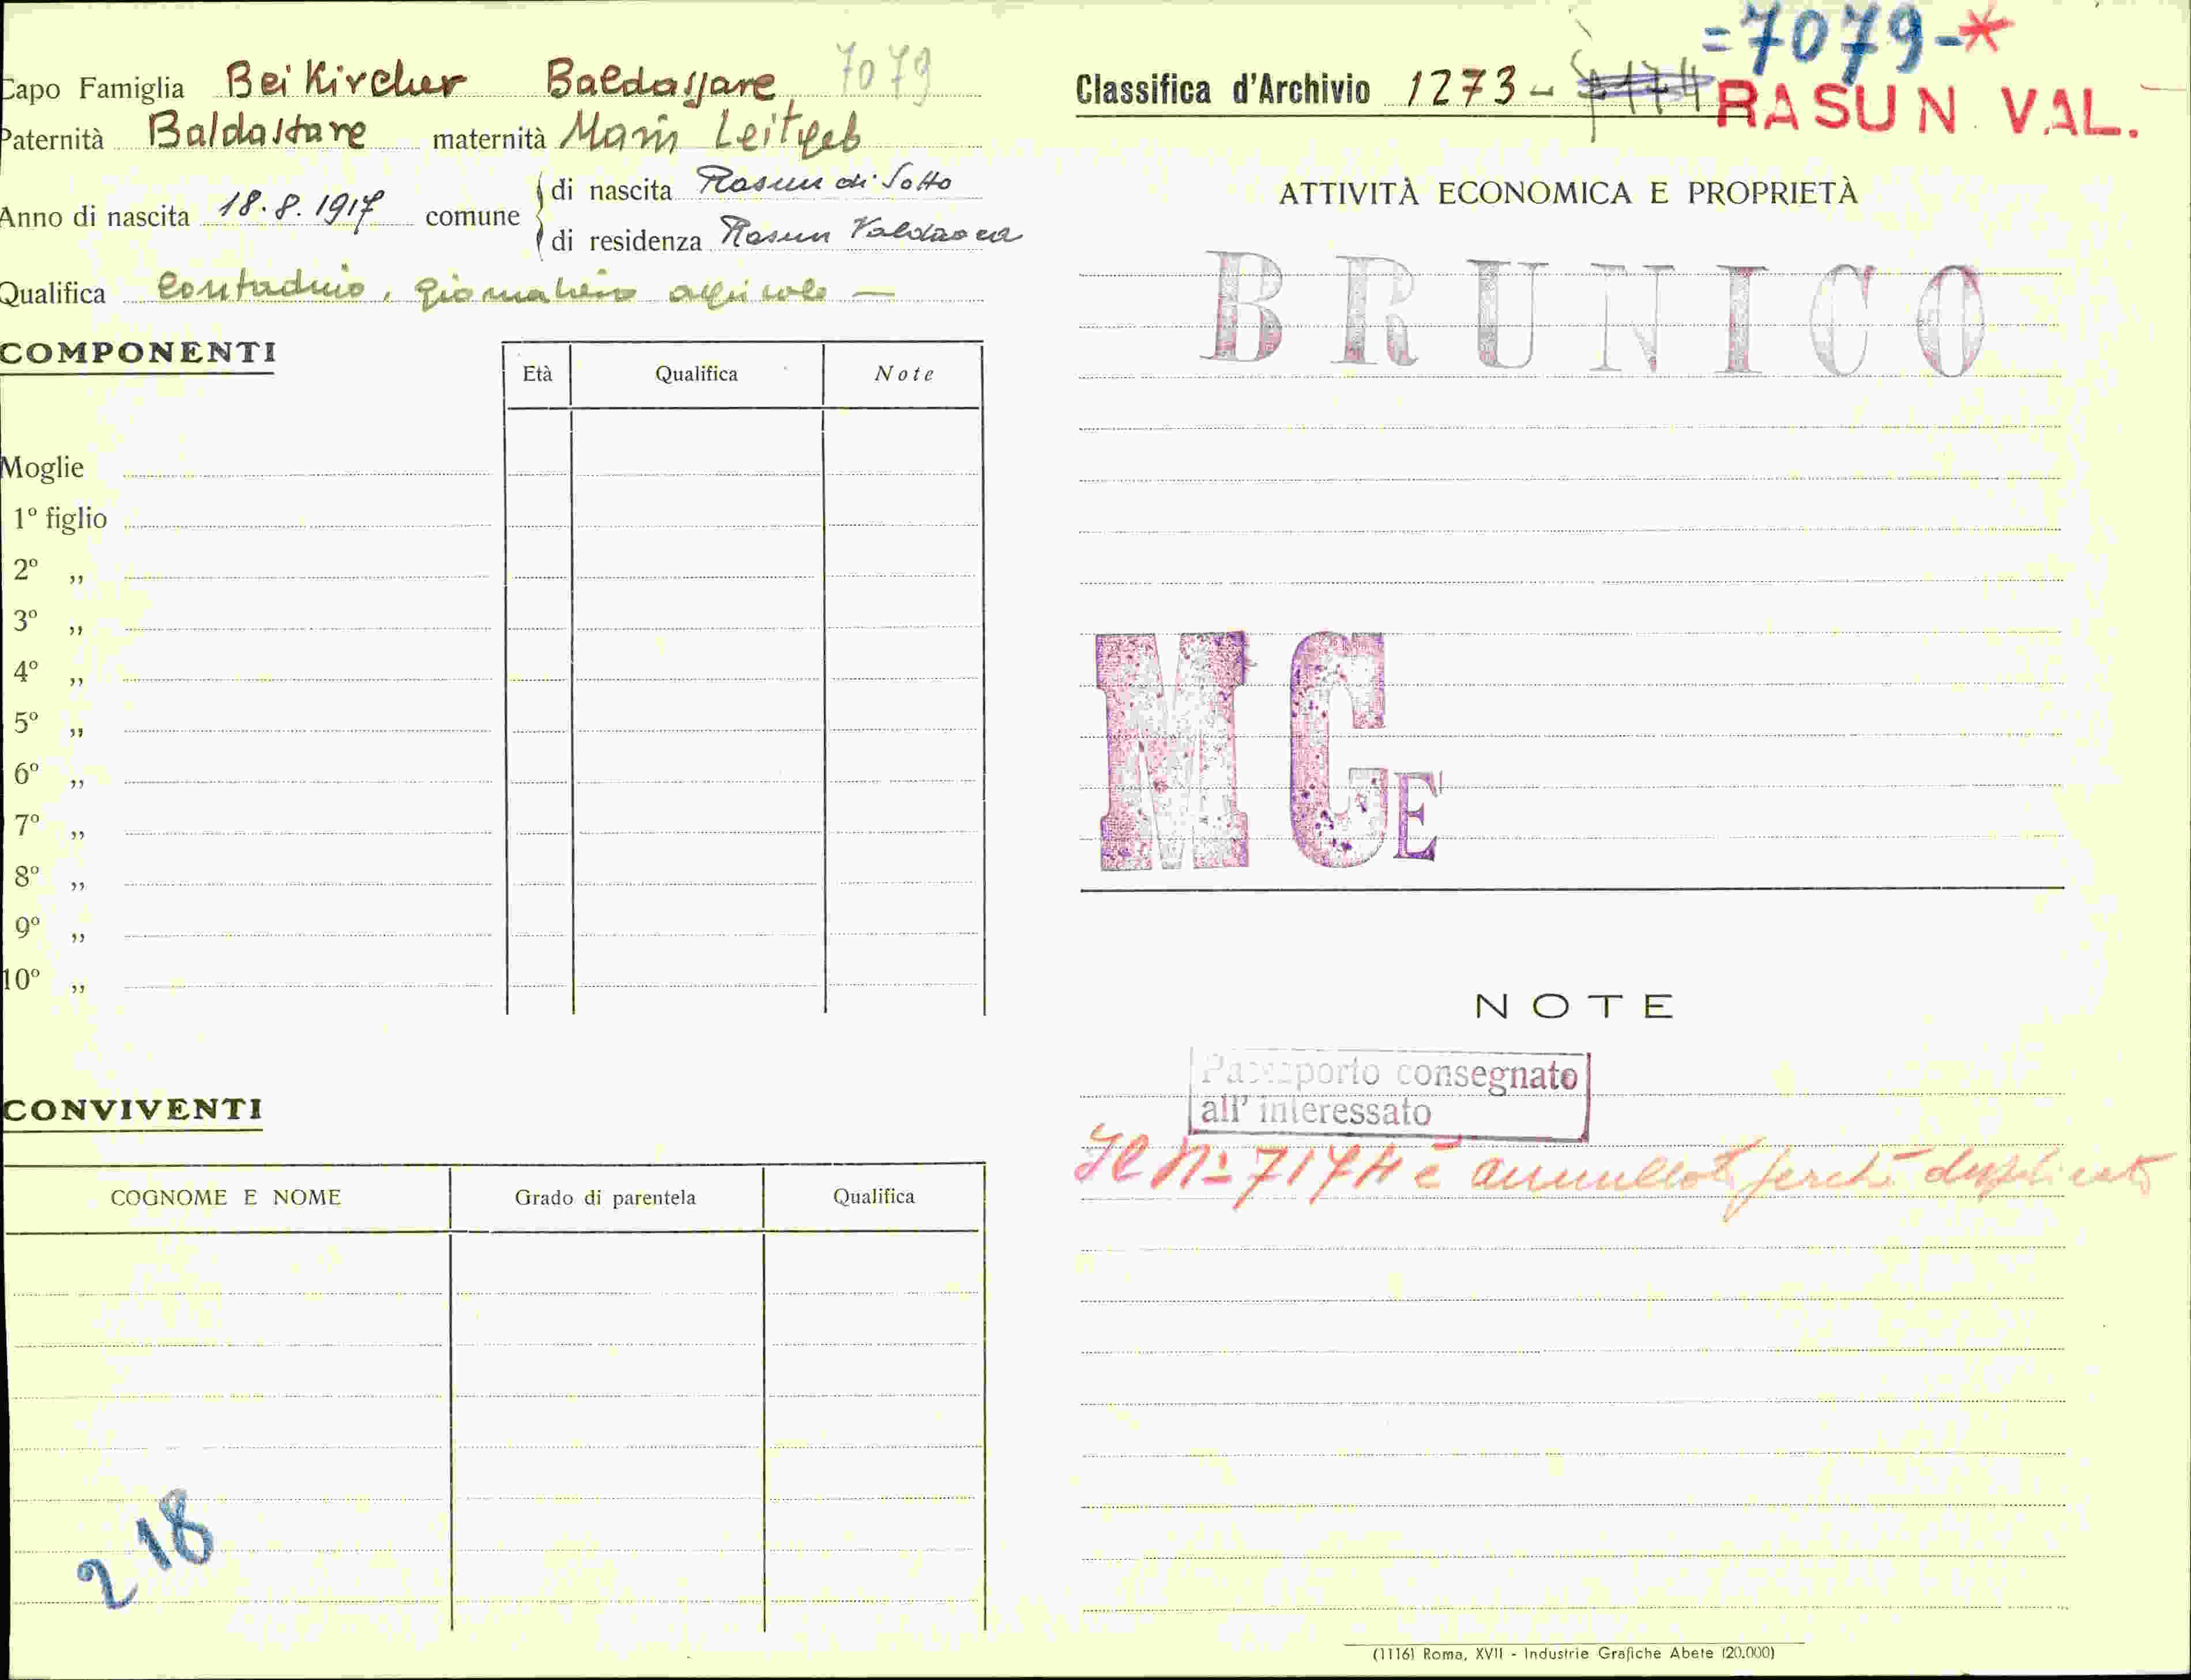 Capo Famiglia Beikircher Baldassare 7079
Paternità Baldassare maternità Maria Leitgeb
Anno di nascita 18.8.1917 comune di nascita Rasun di Sotto
di residenza Rasun Valdaora
Qualifica Contadino, giornaliero agricolo —
COMPONENTI
Età Qualifica Note
Moglie
1º figlio
2º „
3º „
4º „
5º „
6º „
7º „
8º „
9º „
10º „
CONVIVENTI
COGNOME E NOME Grado di parentela Qualifica
218
=7079-*
Classifica d'Archivio 1273-
RASUN VAL.
ATTIVITÀ ECONOMICA E PROPRIETÀ
BRUNICO
MGE
NOTE
Passaporto consegnato
all'interessato
Il N= 7174 è annullato perché duplicato
(1116) Roma, XVII - Industrie Grafiche Abete (20.000)